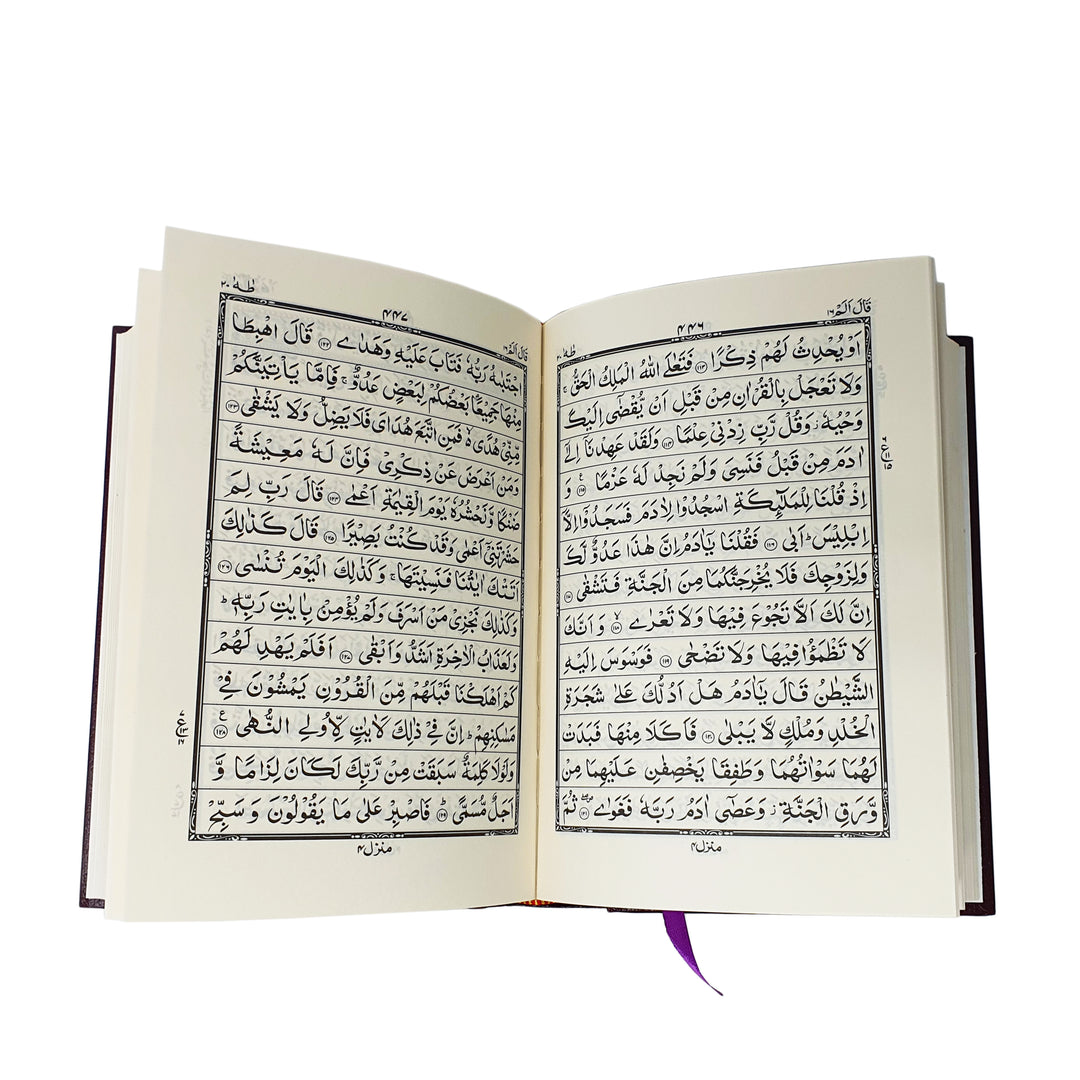 قَالَ اَلَمْ ١٦
٤٤٦
طٰهٰ ٢٠
اَوْ يُحْدِثُ لَهُمْ ذِكْرًا ﴿١١٣﴾ فَتَعٰلَى اللّٰهُ الْمَلِكُ الْحَقُّ ۚ
وَلَا تَعْجَلْ بِالْقُرْاٰنِ مِنْ قَبْلِ اَنْ يُّقْضٰٓى اِلَيْكَ
وَحْيُهٗ ۡ وَقُلْ رَّبِّ زِدْنِيْ عِلْمًا ﴿١١٤﴾ وَلَقَدْ عَهِدْنَاۤ اِلٰٓى
اٰدَمَ مِنْ قَبْلُ فَنَسِيَ وَلَمْ نَجِدْ لَهٗ عَزْمًا ﴿١١٥﴾ وَ
اِذْ قُلْنَا لِلْمَلٰٓئِكَةِ اسْجُدُوْا لِاٰدَمَ فَسَجَدُوْۤا اِلَّاۤ
اِبْلِيْسَ ؕ اَبٰى ﴿١١٦﴾ فَقُلْنَا يٰۤاٰدَمُ اِنَّ هٰذَا عَدُوٌّ لَّكَ
وَلِزَوْجِكَ فَلَا يُخْرِجَنَّكُمَا مِنَ الْجَنَّةِ فَتَشْقٰى ﴿١١٧﴾
اِنَّ لَكَ اَلَّا تَجُوْعَ فِيْهَا وَلَا تَعْرٰى ﴿١١٨﴾ وَاَنَّكَ
لَا تَظْمَؤُا فِيْهَا وَلَا تَضْحٰى ﴿١١٩﴾ فَوَسْوَسَ اِلَيْهِ
الشَّيْطٰنُ قَالَ يٰۤاٰدَمُ هَلْ اَدُلُّكَ عَلٰى شَجَرَةِ
الْخُلْدِ وَمُلْكٍ لَّا يَبْلٰى ﴿١٢٠﴾ فَاَكَلَا مِنْهَا فَبَدَتْ
لَهُمَا سَوْاٰتُهُمَا وَطَفِقَا يَخْصِفٰنِ عَلَيْهِمَا مِنْ
وَّرَقِ الْجَنَّةِ ۡ وَعَصٰٓى اٰدَمُ رَبَّهٗ فَغَوٰى ﴿١٢١﴾ ثُمَّ
منزل ٤
طٰهٰ ٢٠
٤٤٧
قَالَ اَلَمْ ١٦
اجْتَبٰهُ رَبُّهٗ فَتَابَ عَلَيْهِ وَهَدٰى ﴿١٢٢﴾ قَالَ اهْبِطَا
مِنْهَا جَمِيْعًۢا بَعْضُكُمْ لِبَعْضٍ عَدُوٌّ ۚ فَاِمَّا يَاْتِيَنَّكُمْ
مِّنِّيْ هُدًى ۙ فَمَنِ اتَّبَعَ هُدَايَ فَلَا يَضِلُّ وَلَا يَشْقٰى ﴿١٢٣﴾
وَمَنْ اَعْرَضَ عَنْ ذِكْرِيْ فَاِنَّ لَهٗ مَعِيْشَةً
ضَنْكًا وَّنَحْشُرُهٗ يَوْمَ الْقِيٰمَةِ اَعْمٰى ﴿١٢٤﴾ قَالَ رَبِّ لِمَ
حَشَرْتَنِيْۤ اَعْمٰى وَقَدْ كُنْتُ بَصِيْرًا ﴿١٢٥﴾ قَالَ كَذٰلِكَ
اَتَتْكَ اٰيٰتُنَا فَنَسِيْتَهَا ۚ وَكَذٰلِكَ الْيَوْمَ تُنْسٰى ﴿١٢٦﴾
وَكَذٰلِكَ نَجْزِيْ مَنْ اَسْرَفَ وَلَمْ يُؤْمِنْۢ بِاٰيٰتِ رَبِّهٖ ؕ
وَلَعَذَابُ الْاٰخِرَةِ اَشَدُّ وَاَبْقٰى ﴿١٢٧﴾ اَفَلَمْ يَهْدِ لَهُمْ
كَمْ اَهْلَكْنَا قَبْلَهُمْ مِّنَ الْقُرُوْنِ يَمْشُوْنَ فِيْ
مَسٰكِنِهِمْ ؕ اِنَّ فِيْ ذٰلِكَ لَاٰيٰتٍ لِّاُولِي النُّهٰى ﴿١٢٨﴾
وَلَوْلَا كَلِمَةٌ سَبَقَتْ مِنْ رَّبِّكَ لَكَانَ لِزَامًا وَّ
اَجَلٌ مُّسَمًّى ﴿١٢٩﴾ فَاصْبِرْ عَلٰى مَا يَقُوْلُوْنَ وَسَبِّحْ
منزل ٤